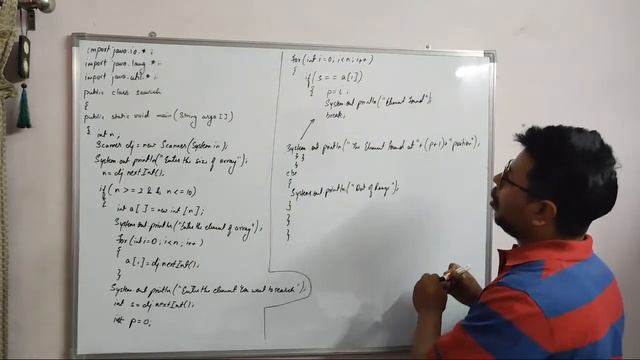 import java.io.*;
import java.lang.*;
import java.util.*;
public class search
{
public static void main(String args[])
{
int n;
Scanner obj = new Scanner(System.in);
System.out.println("Enter the size of array");
n=obj.nextInt();
if(n>=2 && n<=10)
{
int a[]=new int[n];
System.out.println("Enter the element of array");
for(int i=0;i<n;i++)
{
a[i]=obj.nextInt();
}
System.out.println("Enter the element You want to search");
int s=obj.nextInt();
int p=0;
for(int i=0;i<n;i++)
{
if(s==a[i])
{ p=i;
System.out.println("Element found");
break;
System.out.println("The Element found at"+(p+1)+"position");
} }
}
else
{
System.out.println("Out of Range");
}
}
}